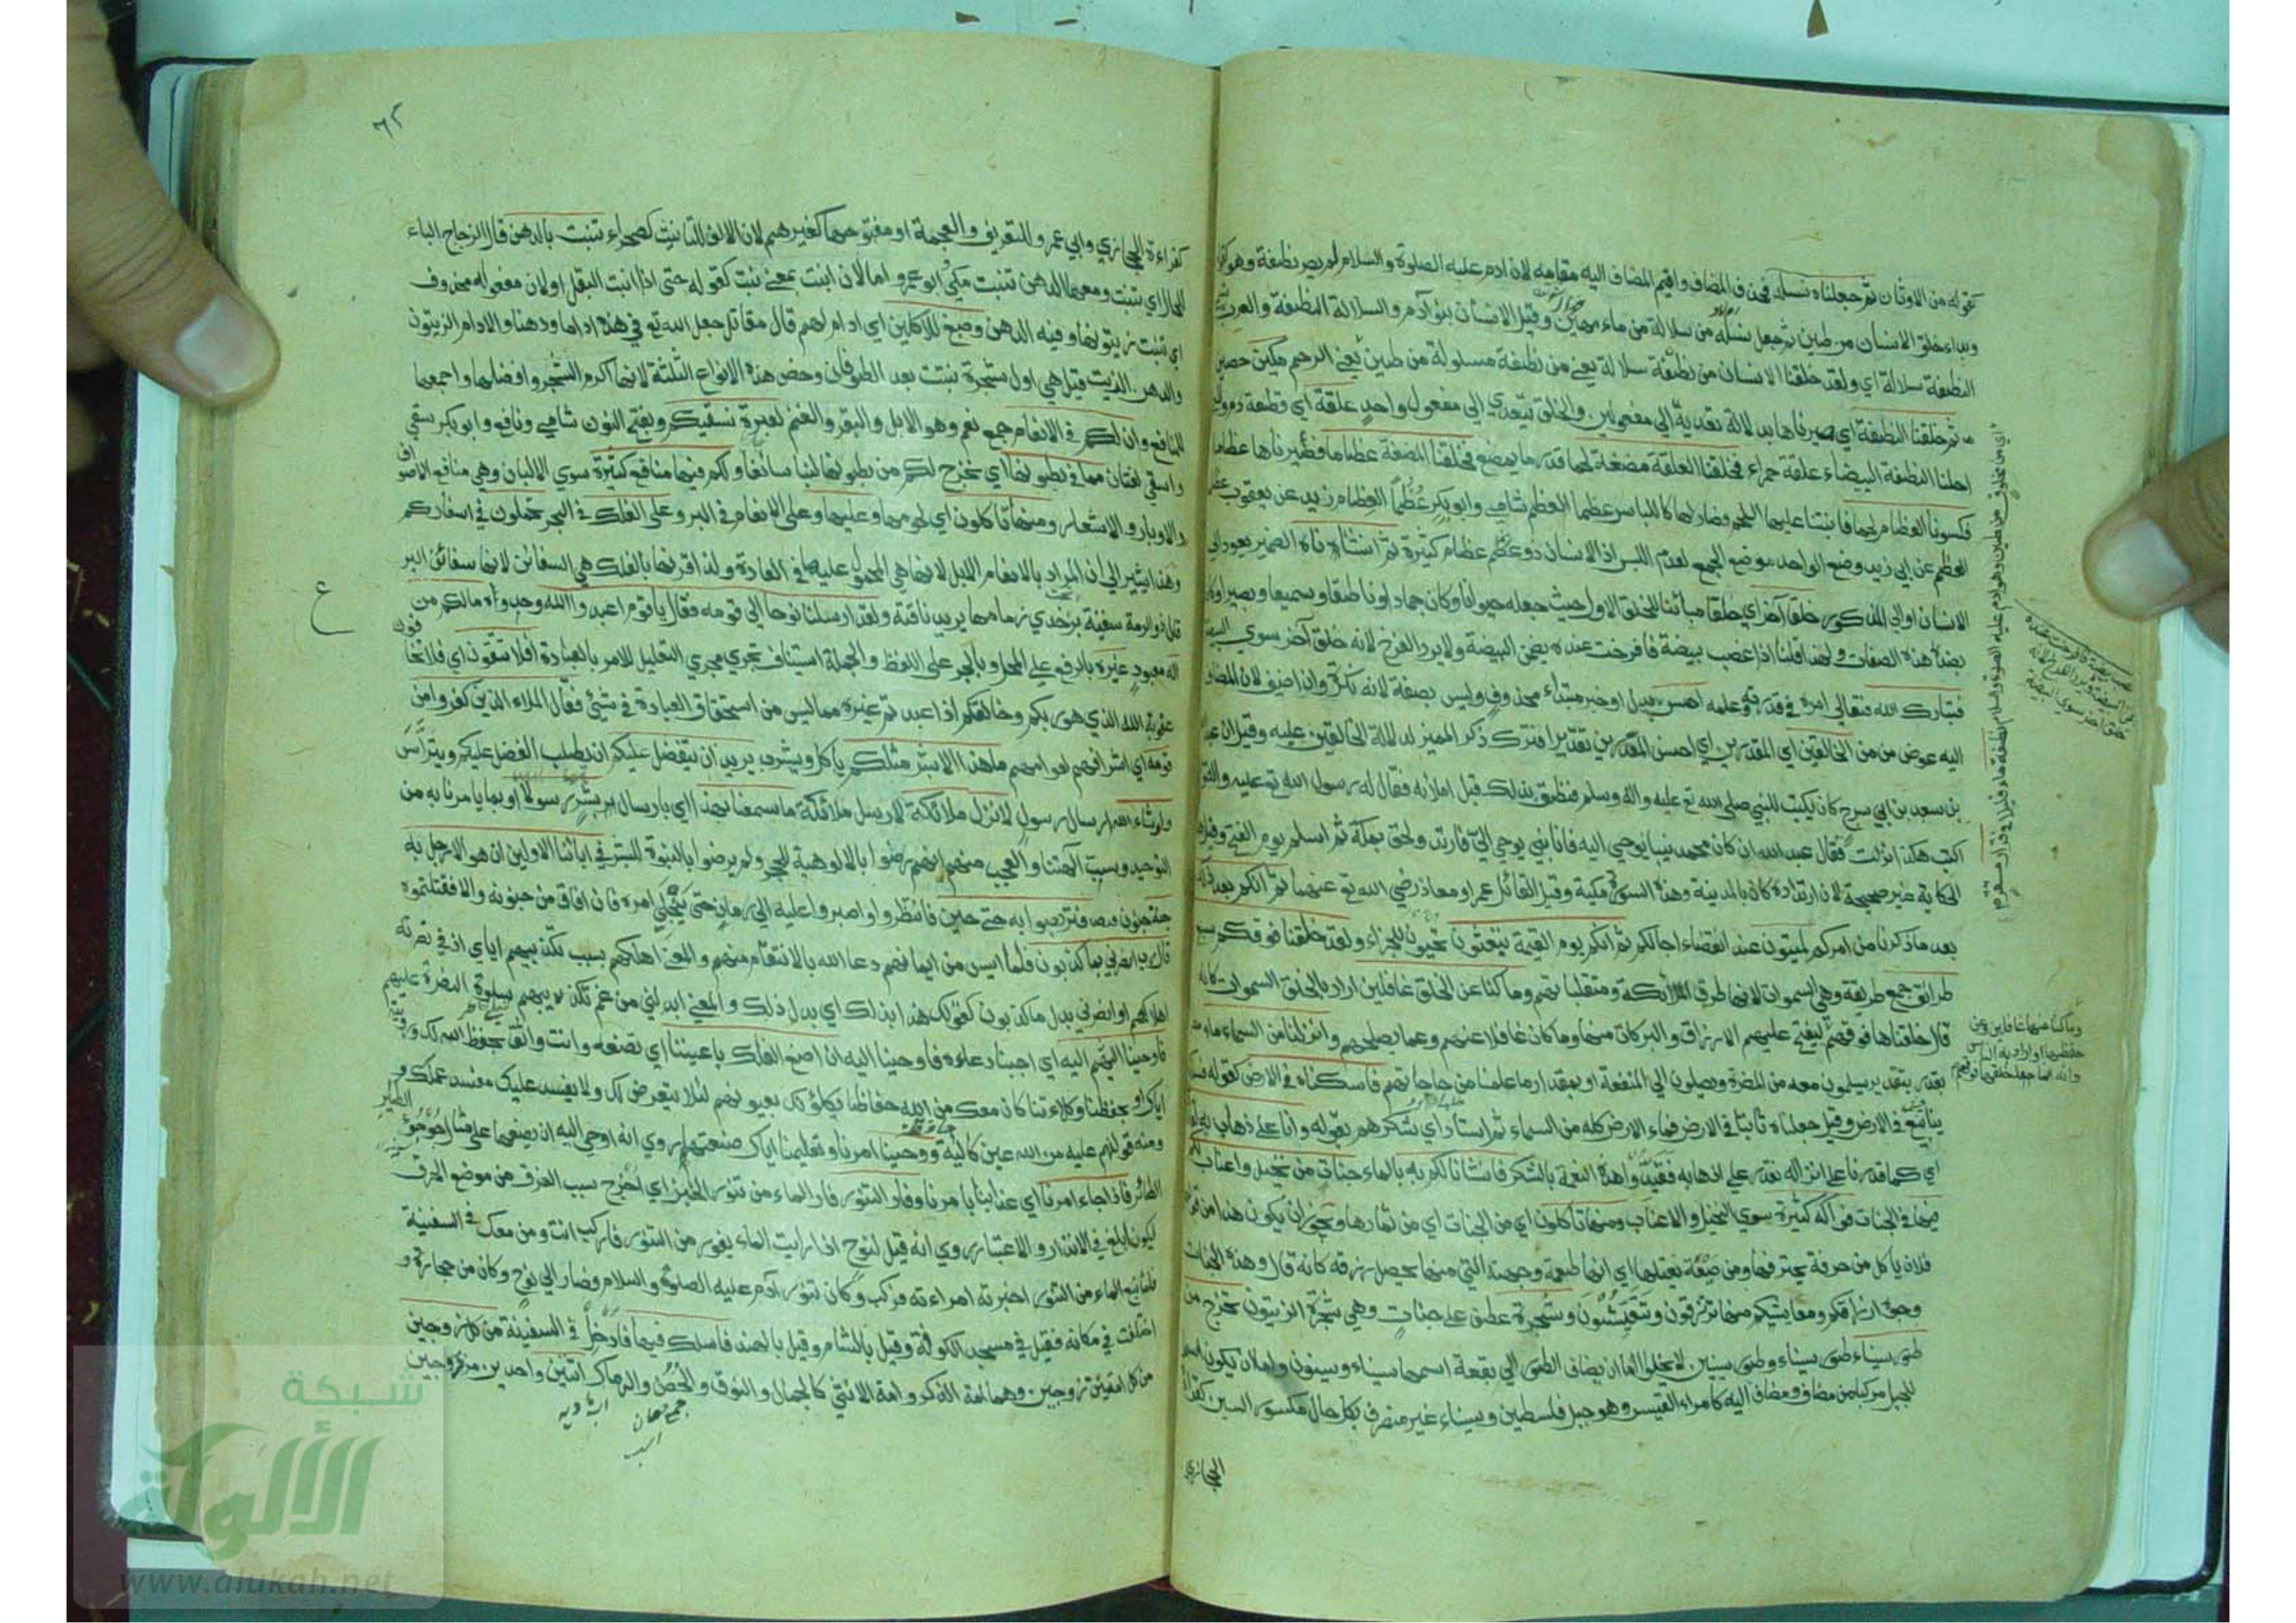 كقوله من الاوثان ثم جعلناه نسله فحذف المضاف واقيم المضاف اليه مقامه لان ادم عليه الصلوة والسلام لم يصر نطفة وهو كقوله
وبداء خلق الانسان من طين ثم جعل نسله من سلالة من ماء مهين وقيل الانسان بنو آدم والسلالة النطفة والعرب تسمي
النطفة سلالة اي ولقد خلقنا الانسان من نطفة سلالة يعني من نطفة مسلولة من طين يعني الرحم مكين حصين
ثم خلقنا النطفة اي صيرناها بدلالة تعديه الي مفعولين والخلق يتعدي الي مفعول واحد علقة اي قطعة دم والمعني
احلنا النطفة البيضاء علقة حمراء فخلقنا العلقة مضغة لحما قدر ما يمضغ فخلقنا المضغة عظاما فصيرناها عظاما
فكسونا العظام لحما فانبتنا عليها اللحم فصار لها كاللباس عظما العظم شامي وابو بكر عظما العظام زيد عن يعقوب عظاما
العظم عن ابي زيد وضع الواحد موضع الجمع لعدم اللبس اذ الانسان ذو عظام كثيرة ثم انشأناه الضمير يعود الي
الانسان او الي المذكور خلقا آخر اي خلقا مباينا للخلق الاول حيث جعله حيوانا وكان جمادا وناطقا وسميعا وبصيرا وكان
بضد هذه الصفات ولهذا قلنا اذا غصب بيضة فافرخت عنده يضمن البيضة ولا يرد الفرخ لانه خلق آخر سوي البيضة
فتبارك الله فتعالي امره في قدرته وعلمه احسن بدل او خبر مبتداء محذوف وليس بصفة لانه نكرة وان اضيف لان المضاف
اليه عوض من من الخالقين اي المقدرين اي احسن المقدرين تقديرا فترك ذكر المميز لدلالة الخالقين عليه وقيل ان عبد الله
بن سعد بن ابي سرح كان يكتب للنبي صلي الله تع عليه واله وسلم فنطق بذلك قبل املائه فقال له رسول الله تع عليه واله
اكتب هكذا انزلت فقال عبد الله ان كان محمد نبيا يوحي اليه فانا نبي يوحي الي فارتد ولحق بمكة ثم اسلم يوم الفتح وقيل هذه
الحكاية غير صحيحة لان ارتداده كان بالمدينة وهذه السورة مكية وقيل القائل عمر او معاذ رضي الله تع عنهما ثم انكم بعد ذلك
بعد ما ذكرنا من امركم لميتون عند انقضاء اجالكم ثم انكم يوم القيمة تبعثون تحيون للجزاء ولقد خلقنا فوقكم سبع
طرائق جمع طريقة وهي السموات لانها طرق الملائكة ومتقلباتهم وما كنا عن الخلق غافلين اراد بالخلق السموات كانه
قال خلقناها فوقهم ليفتح عليهم الارزاق والبركات منها وما كان غافلا عنهم وعما يصلحهم وانزلنا من السماء ماء
بقدر بتقدير يسلمون معه من المضرة ويصلون الي المنفعة او بمقدار ما علمنا من حاجاتهم فاسكناه في الارض كقوله فسلكه
ينابيع في الارض وقيل جعلناه ثابتا في الارض فماء الارض كله من السماء ثم استادي شكرهم بقوله وانا علي ذهاب به لقادرون
اي كما قدرنا علي انزاله نقدر علي اذهابه فقيدوا هذه النعمة بالشكر فانشانا لكم به بالماء جنات من نخيل واعناب لكم
فيها في الجنات فواكه كثيرة سوي النخيل والاعناب ومنها تاكلون اي من الجنات اي من ثمارها ويجوز ان يكون هذا من قولهم
فلان ياكل من حرفة يحترفها ومن ضيعة يغتلها اي انها طعمة وجهته التي منها يحصل رزقه كانه قال وهذه الجنات
وجوه ارزاقكم ومعايشكم منها ترتزقون وتتعيشون وشجرة عطف علي جنات وهي شجرة الزيتون تخرج من
طور سيناء طور سيناء وطور سينين لا يخلوا اما ان يضاف الطور الي بقعة اسمها سيناء وسينون واما ان يكون اسما
للجبل مركبا من مضاف ومضاف اليه كامراء القيس وهو جبل فلسطين وسيناء غير منصرف بكل حال مكسور السين كقراءة
الحجازي
وما كنا عنها غافلين وعن
حفظها او اراد به الناس
وانه انما جعل خلقها فوقهم
٦٢
كقراءة الحجازي وابي عمرو للتعريف والعجمة او مفتوحها كغيرهم لان الالف للتانيث كصحراء تنبت بالدهن قال الزجاج الباء
للحال اي تنبت ومعها الدهن تنبت مكي وابو عمرو اما لان انبت بمعني نبت كقوله حتي اذا انبت البقل او لان مفعوله محذوف
اي تنبت زيتونها وفيه الدهن وصبغ للآكلين اي ادام لهم قال مقاتل جعل الله تع في هذه اداما ودهنا والادام الزيتون
والدهن الزيت قيل هي اول شجرة نبتت بعد الطوفان وخص هذه الانواع الثلثة لانها اكرم الشجر وافضلها واجمعها
للمنافع وان لكم في الانعام جمع نعم وهو الابل والبقر والغنم لعبرة نسقيكم وبفتح النون شامي ونافع وابو بكر سقي
واسقي لغتان مما في بطونها اي نخرج لكم من بطونها لبنا سائغا ولكم فيها منافع كثيرة سوي الالبان وهي منافع الاصواف
والاوبار والاشعار ومنها تاكلون اي لحومها وعليها وعلي الانعام في البر وعلي الفلك في البحر تحملون في اسفاركم
وهذا يشير الي ان المراد بالانعام الابل لانها هي المحمول عليها في العادة ولذا قرنها بالفلك هي السفائن لانها سفائن البر
قال ذو الرمة سفينة بر تحت خدي زمامها يريد ناقته ولقد ارسلنا نوحا الي قومه فقال يا قوم اعبدوا الله وحدوه مالكم من
اله معبود غيره بالرفع علي المحل وبالجر علي اللفظ والجملة استيناف تجري مجري التعليل للامر بالعبادة افلا تتقون اي فلا تخافون
عقوبة الله الذي هو ربكم وخالقكم اذا عبدتم غيره مما ليس من استحقاق العبادة في شيئ فقال الملاء الذين كفروا من
قومه اي اشرافهم لعوامهم ما هذا الا بشر مثلكم ياكل ويشرب يريد ان يتفضل عليكم ان يطلب الفضل عليكم ويترأس
ولو شاء الله ارسال رسول لانزل ملائكة لارسل ملائكة ما سمعنا بهذا اي بارسال بشر رسولا او بما يامرنا به من
التوحيد وسب آلهتنا والعجب منهم انهم رضوا بالالوهية للحجر ولم يرضوا بالنبوة للبشر في ابائنا الاولين ان هو الا رجل به
جنة جنون فتربصوا به حتي حين فانتظروا واصبروا عليه الي زمان حتي ينجلي امره فان افاق من جنونه والا فقتلتموه
قال رب انصرني بما كذبون فلما ايس من ايمانهم دعا الله بالانتقام منهم والمعني اهلكهم بسبب تكذيبهم اياي اذ في نصرته
اهلاكهم او انصرني بدل ما كذبون كقولك هذا بذلك اي بدل ذلك والمعني ابدلني من غم تكذيبهم سلوة النصرة عليهم
فاوحينا اليه اي اجبنا دعاءه فاوحينا اليه ان اصنع الفلك باعيننا اي تصنعه وانت واثق بحفظ الله لك ورؤيته
اياك او بحفظنا وكلاءتنا كان معك من الله حفاظا يكلؤنك بعيونهم لئلا يتعرض لك ولا يفسد عليك مفسد عملك و
ومنه قولهم عليه من الله عين كالئة ووحينا امرنا وتعليمنا اياك صنعتها روي انه اوحي اليه ان يصنعها علي مثال جؤجؤ الطاير
الطائر فاذا جاء امرنا اي عذابنا بامرنا وفار التنور فار الماء من تنور الخبز اي اخرج سبب الغرق من موضع الحرق
ليكون ابلغ في الانذار والاعتبار روي انه قيل لنوح اذا رايت الماء يفور من التنور فاركب انت ومن معك في السفينة
فلما نبع الماء من التنور اخبرته امراءته فركب وكان تنور آدم عليه الصلوة والسلام فصار الي نوح وكان من حجارة و
اختلف في مكانه فقيل في مسجد الكوفة وقيل بالشام وقيل بالهند فاسلك فيها فادخل في السفينة من كل زوجين
من كل امتين زوجين وهما امة الذكر وامة الانثي كالجمال والنوق والحصن والرماك اثنين واحدين مزدوجين
ع
شبكة
الألوكة
www.alukah.net